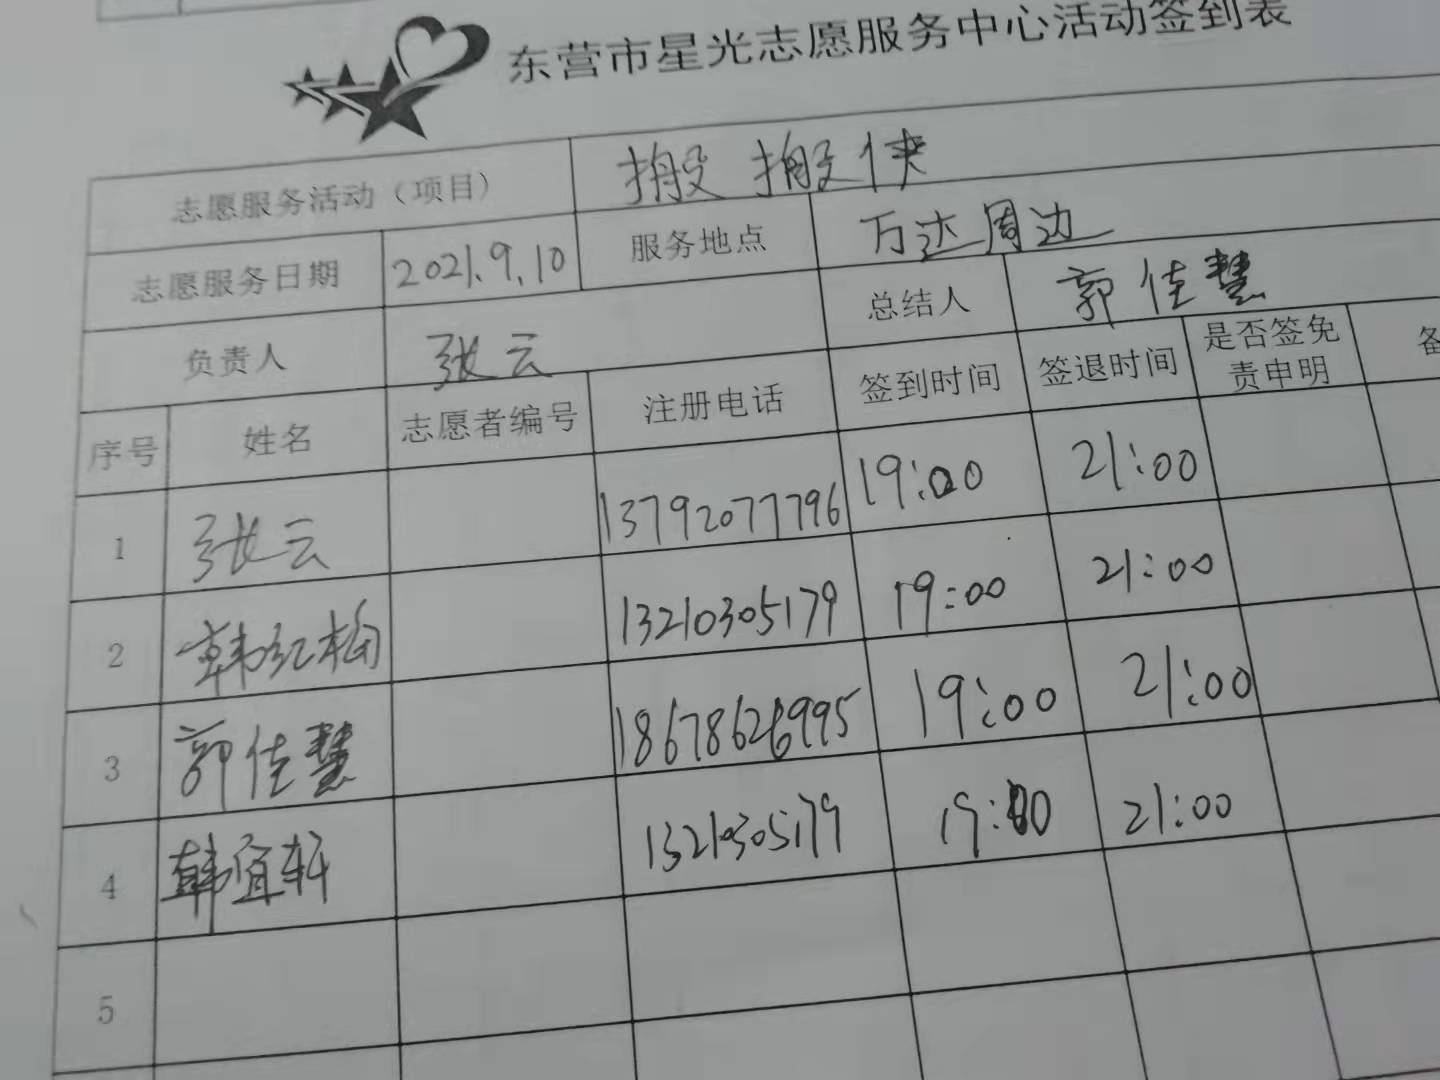 东营市星光志愿服务中心活动签到表
志愿服务活动（项目） 搬搬侠
志愿服务日期 2021.9.10 服务地点 万达周边
负责人 张云 总结人 郭佳慧
序号 姓名 志愿者编号 注册电话 签到时间 签退时间 是否签免责申明 备
1 张云 13792077796 19:00 21:00
2 韩红梅 13210305179 19:00 21:00
3 郭佳慧 18678626995 19:00 21:00
4 韩宜轩 13210305179 19:00 21:00
5